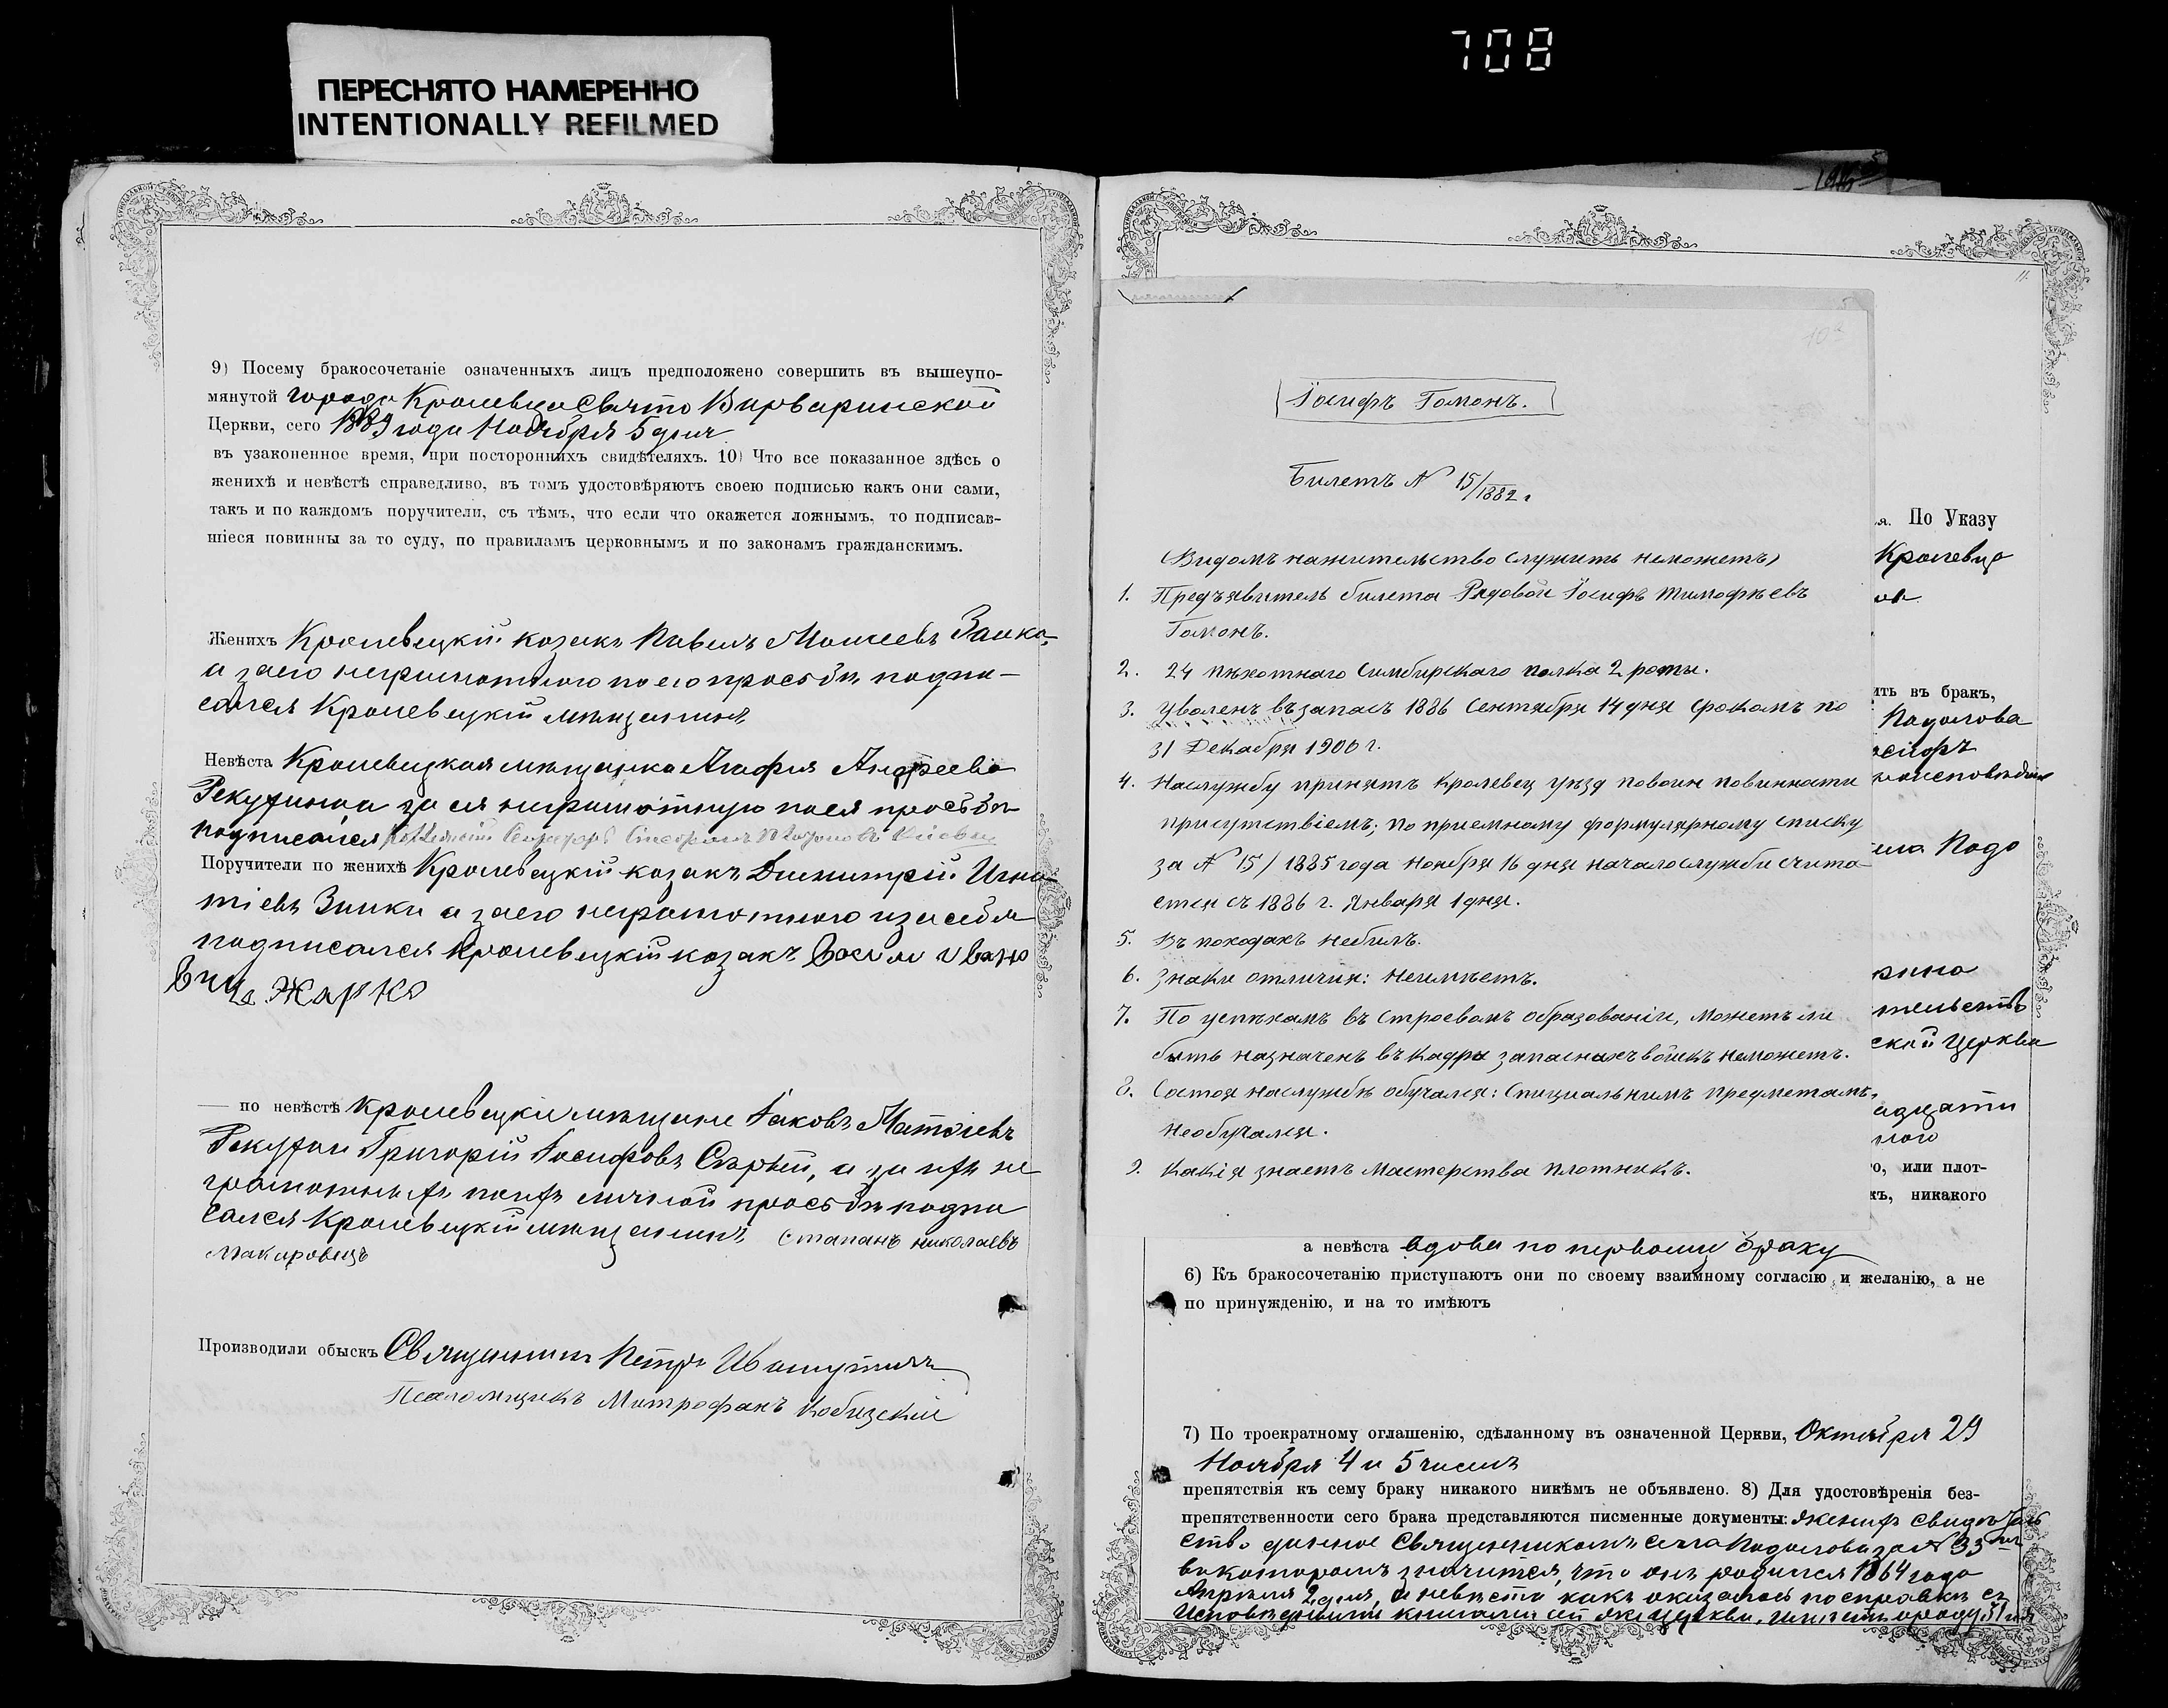 708
ПЕРЕСНЯТО НАМЕРЕННО
INTENTIONALLY REFILMED
9) Посему бракосочетаніе означенныхъ лицъ предположено совершить въ вышеупо-
мянутой города Кролевца Свято Варваринской
Церкви, сего 1889 года Ноября 5 дня
въ узаконенное время, при постороннихъ свидѣтеляхъ. 10) Что все показанное здѣсь о
женихѣ и невѣстѣ справедливо, въ томъ удостовѣряютъ своею подписью какъ они сами,
такъ и по каждомъ поручители, съ тѣмъ, что если что окажется ложнымъ, то подписав-
шіеся повинны за то суду, по правиламъ церковнымъ и по законамъ гражданскимъ.
Женихъ Кролевецкій козакъ Павелъ Моисеевъ Заика,
а за его неграмотного по его просьбѣ подпи-
сался Кролевецкій мѣщанинъ
Невѣста Кролевецкая мѣщанка Агафія Андреева
за ея неграмотную по ея просьбѣ
подписался
Поручители по женихѣ Кролевецкій козакъ Димитрій Игна
тіевъ Заика а за его неграмотного и за себя
подписался Кролевецкій козакъ
Жарко
— по невѣстѣ Кролевецкіе мѣщане Іаковъ
Григорій Іосифовъ Сѣрый, а за ихъ не
грамотныхъ по ихъ личной просьбѣ подпи
сался Кролевецкій мѣщанинъ Стапанъ Николаевъ
Макаровецъ
Производили обыскъ Священникъ Петръ
Псаломщикъ Митрофанъ Кобызскій
11.
Іосифъ Гомонъ.
Билетъ № 15/1882 г
(Видомъ нажительство служить неможетъ)
1. Предъявитель билета Рядовой Іосифъ Тимофѣевъ
Гомонъ.
2. 24 пѣхотнаго Симбирскаго полка 2 роты.
3. Уволенъ въ запасъ 1886 Сентября 14 дня срокомъ по
31 Декабря 1900 г.
4. Наслужбу принятъ Кролевец уѣзд повоин повинности
присутствіемъ; по приемному формулярному списку
за № 15/ 1885 года Ноября 16 дня начало службы счита
ется съ 1886 г. Января 1 дня.
5. Въ походахъ небылъ.
6. Знаки отличия: неимѣетъ.
7. По успѣхамъ въ строевомъ образованіи, можетъ ли
быть назначенъ въ кадры запасныхъ войскъ неможетъ.
8. Состоя наслужбѣ обучался: Специальнымъ предметамъ,
необучался.
9. Какія знаетъ мастерства плотникъ.
я. По Указу
Кролевца
ить въ бракъ,
Подолова
осифъ
ила Подо
рина
тельств
ской Церкви
адцати
ного
о, или плот-
къ, никакого
а невѣста вдова по первому браку
6) Къ бракосочетанію приступаютъ они по своему взаимному согласію и желанію, а не
по принужденію, и на то имѣютъ
7) По троекратному оглашенію, сдѣланному въ означенной Церкви, Октября 29
Ноября 4 и 5 чиселъ
препятствія къ сему браку никакого никѣмъ не объявлено. 8) Для удостовѣренія без-
препятственности сего брака представляются писменные документы: Женихъ Свидѣтель
ство данное Священникомъ села Подолова за № 33
въ которомъ значится, что онъ родился 1864 года
Апрѣля 2 дня, а невѣста какъ оказалось по справкѣ съ
Исповѣдными книгами сей же церкви,